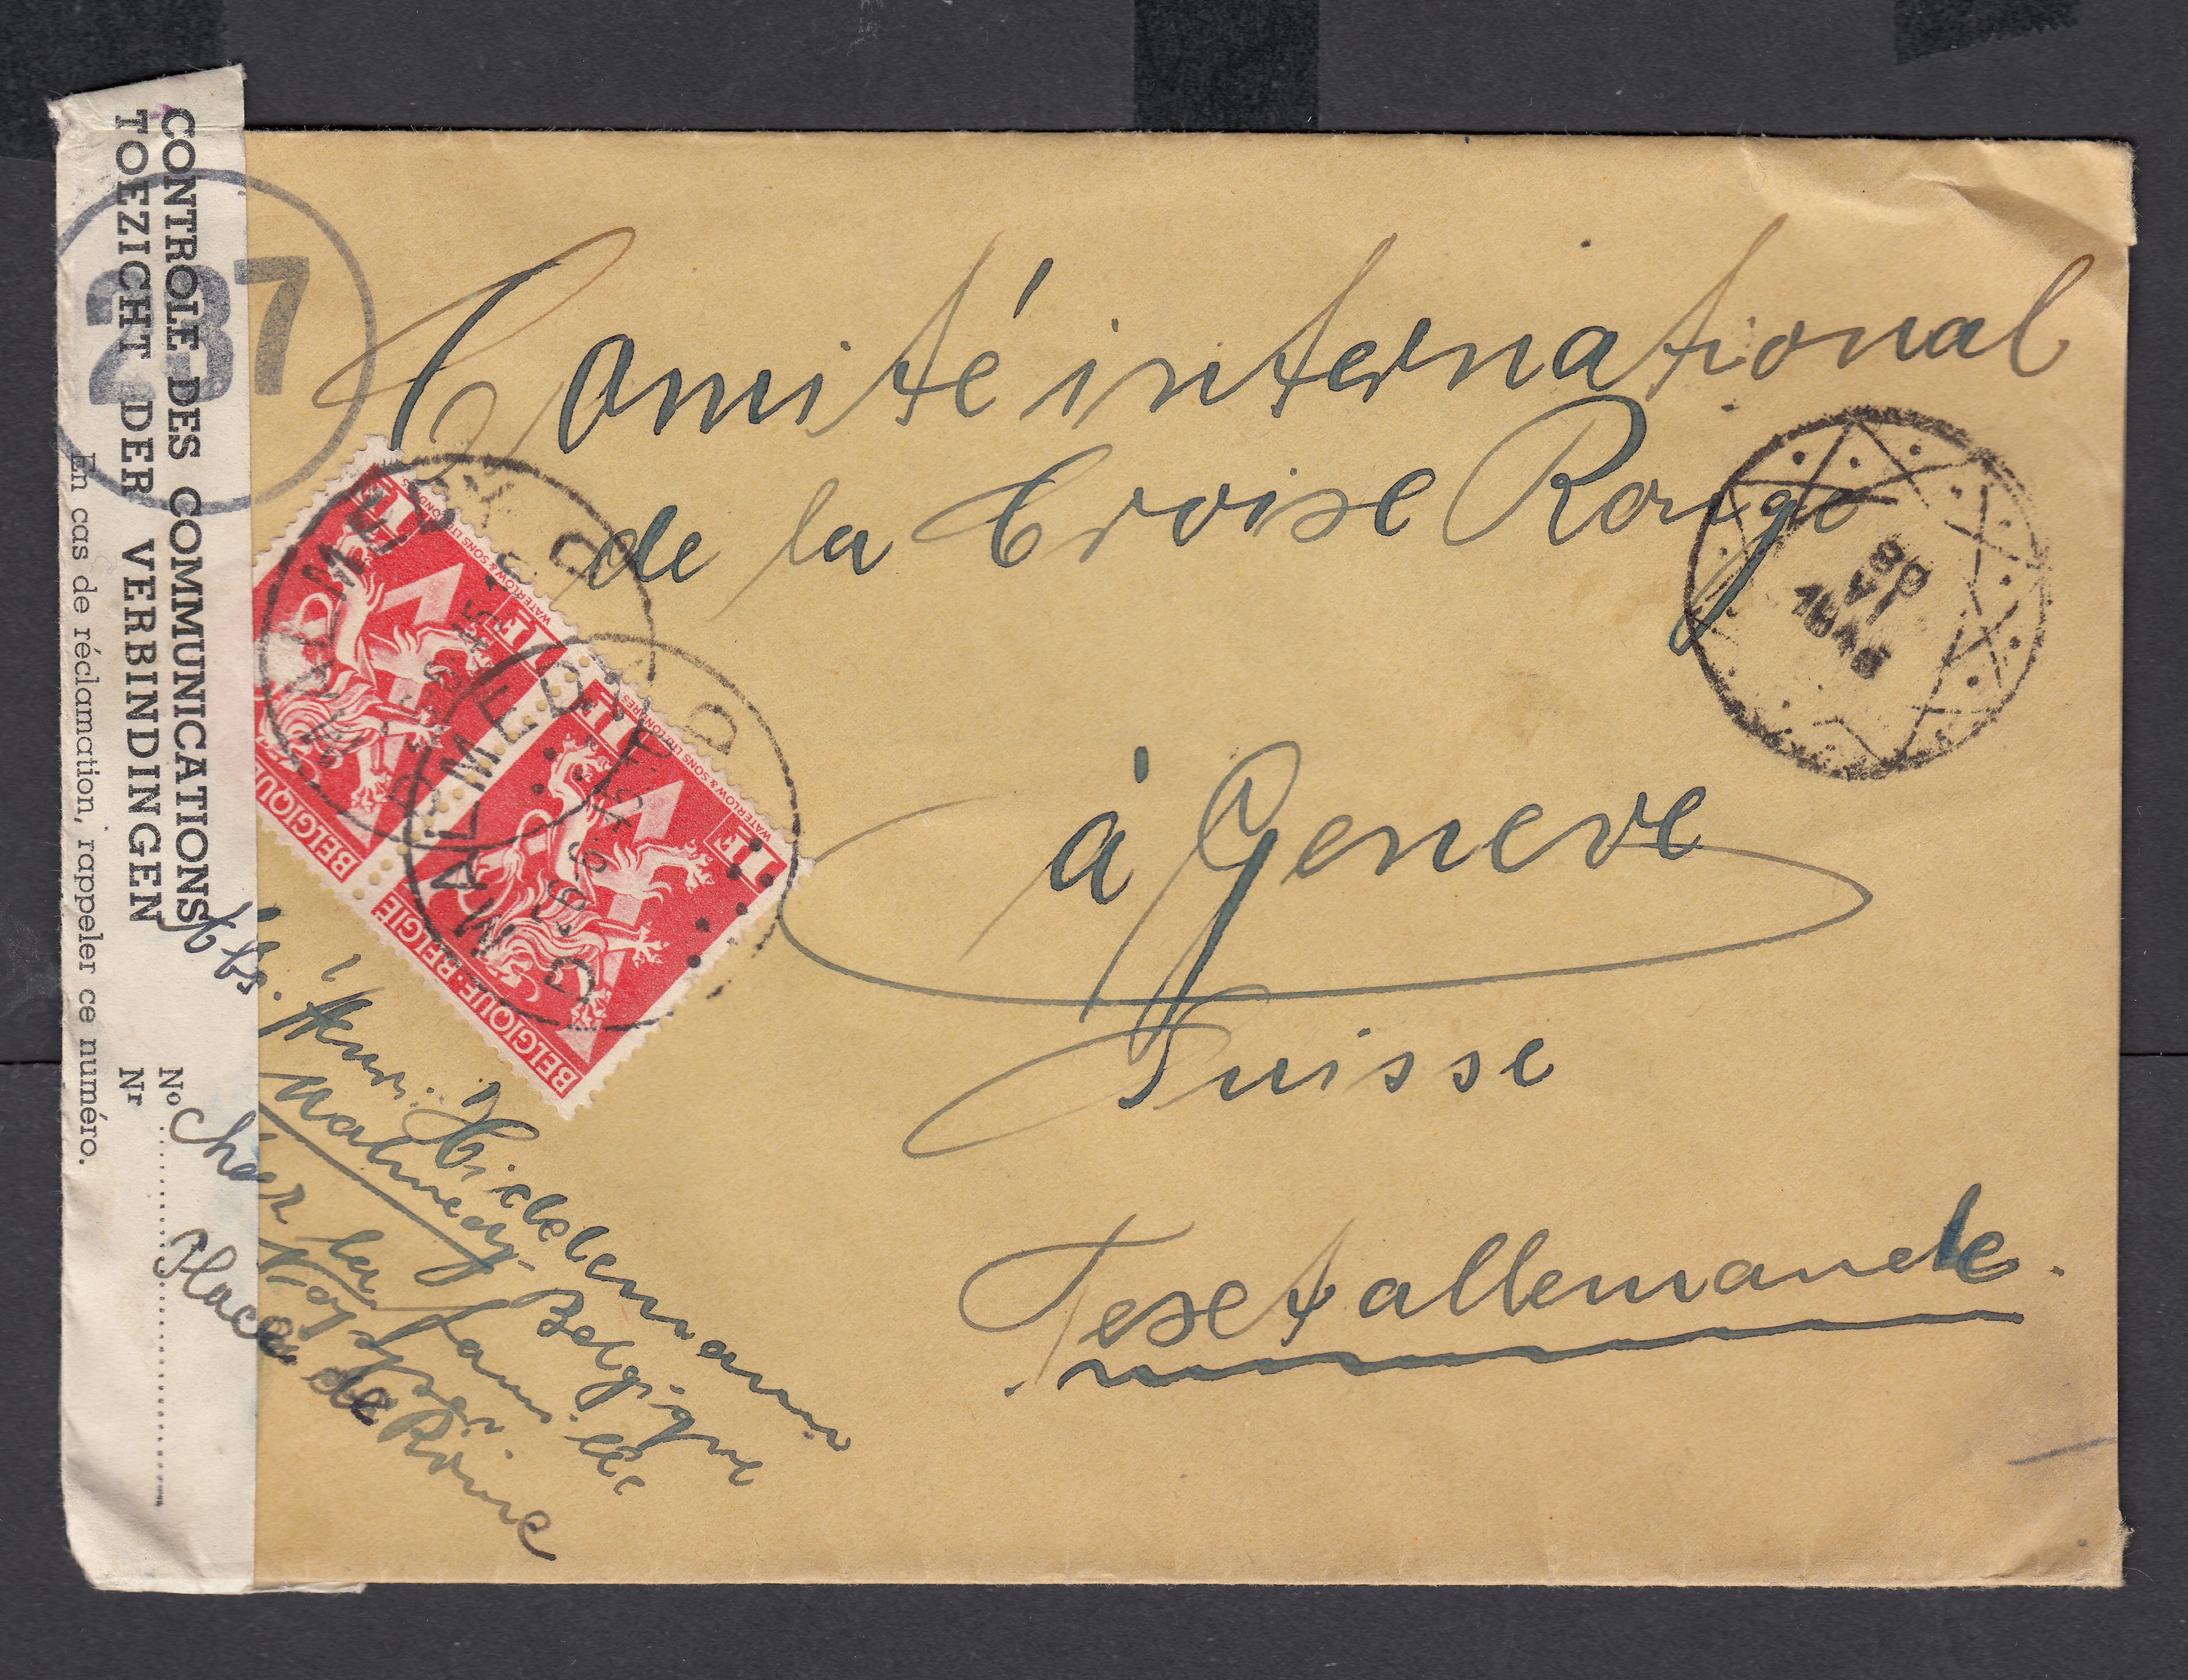 CONTROLE DES COMMUNICATIONS
TOEZICHT DER VERBINDINGEN
No
Nr
En cas de réclamation, rappeler ce numéro.
237
Comité international
de la Croise Rouge
à Geneve
Suisse
Text allemande.
MALMEDY
D
MALMEDY
D
1F
1F
WATERLOW & SONS LTD LONDRES
BELGIQUE
1F
1F
WATERLOW & SONS LTD LONDRES
BELGIQUE-BELGIË
Abs. Henri Hiclelemann
Malmedy Belgique
Chez la famille
Place de Rome